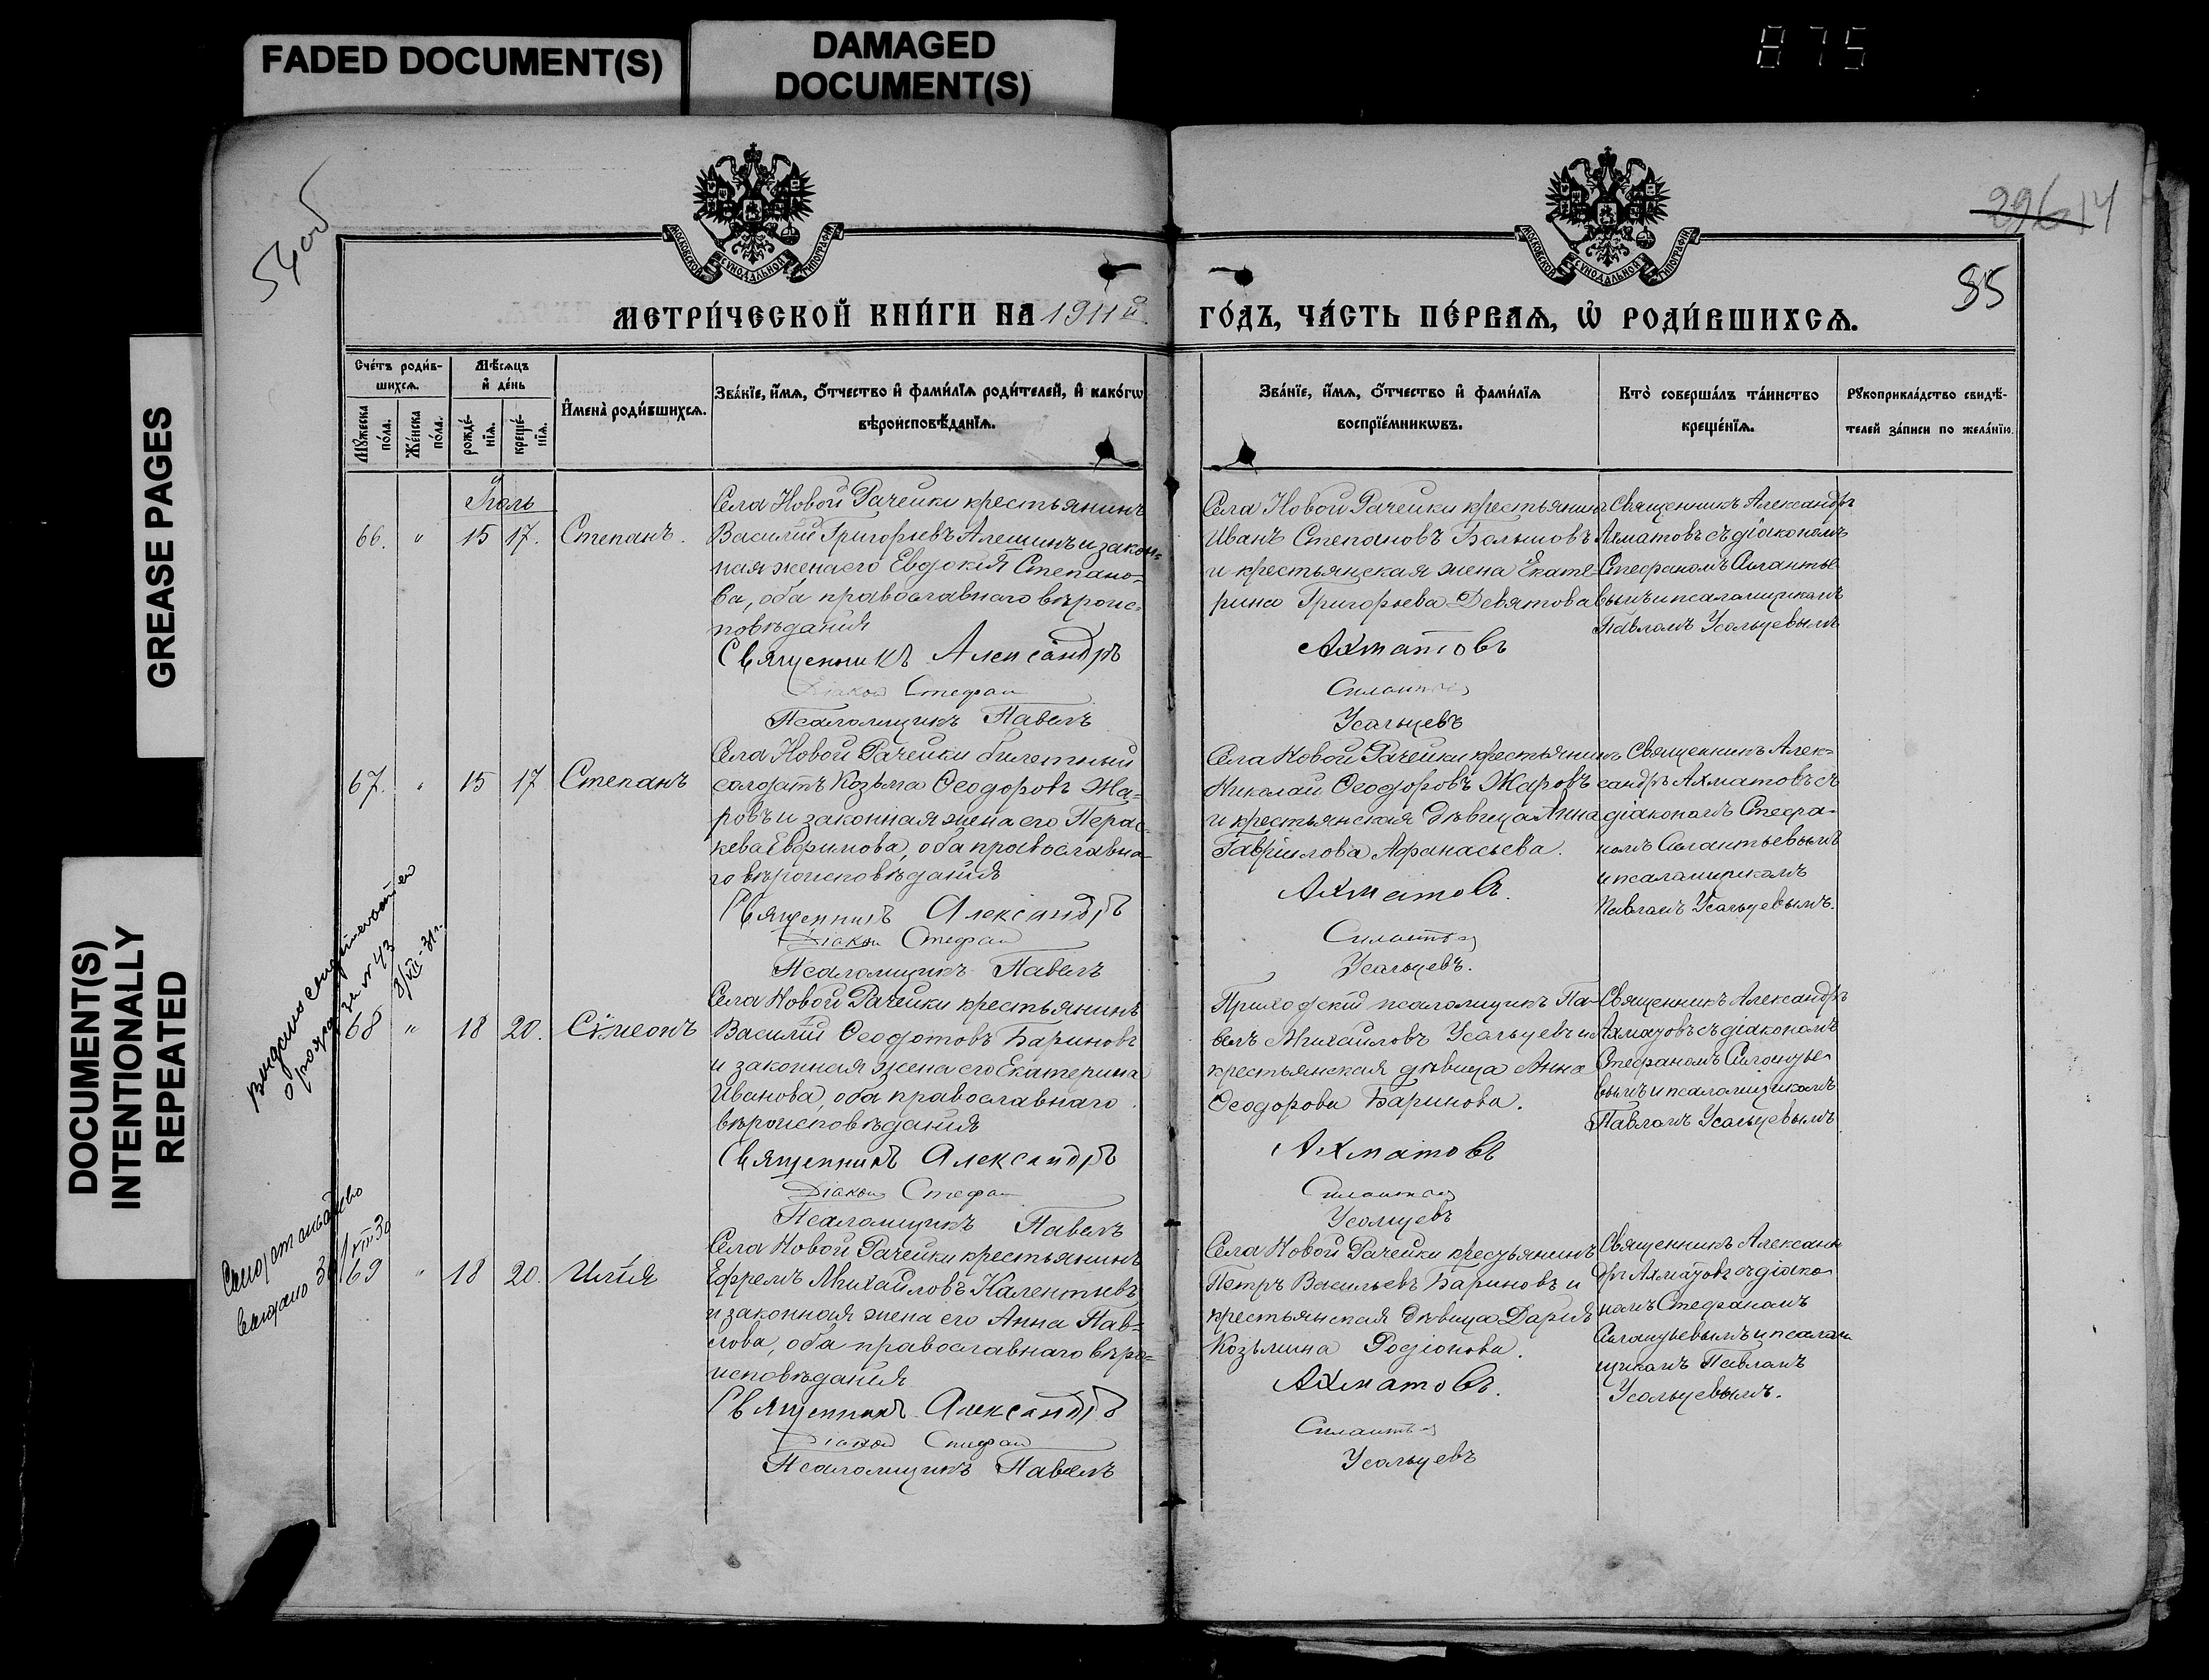 FADED DOCUMENT(S)
DAMAGED
DOCUMENT(S)
875
GREASE PAGES
DOCUMENT(S)
INTENTIONALLY
REPEATED
226 14
85
МОСКОВСКОЙ СѴНОДАЛЬНОЙ ТИПОГРАФІИ
МОСКОВСКОЙ СѴНОДАЛЬНОЙ ТИПОГРАФІИ
МЕТРИ́ЧЕСКОЙ КНИ́ГИ НА 1911й
ГО́ДЪ, ЧА́СТЬ ПЕ́РВАѦ, Ѡ҆ РОДИ́ВШИХСѦ.
Сче́тъ роди́в-
шихсѧ.
Мꙋжеска
по́ла.
Же́нска
по́ла.
Мѣ́сѧцъ
и҆ де́нь
рожде́-
нїѧ.
креще́-
нїѧ.
И҆мена̀ роди́вшихсѧ.
Зва́нїе, и҆́мѧ, ѻ҆́тчество и҆ фами́лїѧ роди́телей, и҆ како́гѡ
вѣроисповѣ́данїѧ.
Зва́нїе, и҆́мѧ, ѻ҆́тчество и҆ фами́лїѧ
воспрїе́мникѡвъ.
Кто̀ соверша́лъ та́инство
креще́нїѧ.
Рꙋкоприкла́дство свидѣ́-
телей за́писи по жела́нїю.
Іюль
66. " 15 17. Степанъ.
Села Новой Рачейки крестьянинъ
Василій Григорьевъ Алешинъ и закон-
ная жена его Евдокія Степано-
ва, оба православнаго вѣроис-
повѣданія
Священникъ Александръ
Діаконъ Стефан
Псаломщикъ Павелъ
Села Новой Рачейки крестьянинъ
Иванъ Степановъ Большовъ
и крестьянская жена Екате-
рина Григорьева Девятова
Ахматовъ
Силантьев
Усальцевъ
Священникъ Александръ
Ахматовъ съ діакономъ
Стефаномъ Силантье-
вымъ и псаломщикомъ
Павломъ Усальцевымъ
67. " 15 17 Степанъ
Села Новой Рачейки билетный
солдатъ Козьма Ѳеодоровъ Жа-
ровъ и законная жена его Парас-
кева Евфимова, оба православна-
го вѣроисповѣданія
Священникъ Александръ
Діакон Стефан
Псаломщикъ Павелъ
Села Новой Рачейки крестьянинъ
Николай Ѳеодоровъ Жаровъ
и крестьянская дѣвица Анна
Гавріилова Афанасьева.
Ахматовъ.
Силантьев
Усальцевъ.
Священникъ Алек-
сандръ Ахматовъ съ
діакономъ Стефа-
номъ Силантьевымъ
и псаломщикомъ
Павломъ Усальцевымъ.
68 " 18 20. Сѵмеонъ
Села Новой Рачейки крестьянинъ
Василій Ѳеодотовъ Бариновъ
и законная жена его Екатерина
Иванова, оба православнаго
вѣроисповѣданія
Священникъ Александръ
Діаконъ Стефан
Псаломщикъ Павелъ
Приходскій псаломщикъ Па-
велъ Михайловъ Усальцевъ и
крестьянская дѣвица Анна
Ѳеодорова Баринова.
Ахматовъ
Силантьев
Усальцевъ
Священникъ Александръ
Ахматовъ съ діакономъ
Стефаномъ Силантье-
вымъ и псаломщикомъ
Павломъ Усальцевымъ
69 " 18 20. Илія
Села Новой Рачейки крестьянинъ
Ефремъ Михайловъ Калентьевъ
и законная жена его Анна Пав-
лова, оба православнаго вѣро-
исповѣданія
Священникъ Александръ
Діаконъ Стефан
Псаломщикъ Павелъ
Села Новой Рачейки крестьянинъ
Петръ Васильевъ Бариновъ и
крестьянская дѣвица Дарія
Козьмина Родіонова.
Ахматовъ.
Силантьев
Усальцевъ
Священникъ Алексан-
дръ Ахматовъ съ діако-
номъ Стефаномъ
Силантьевымъ и псалом-
щикомъ Павломъ
Усальцевымъ.
за № 43